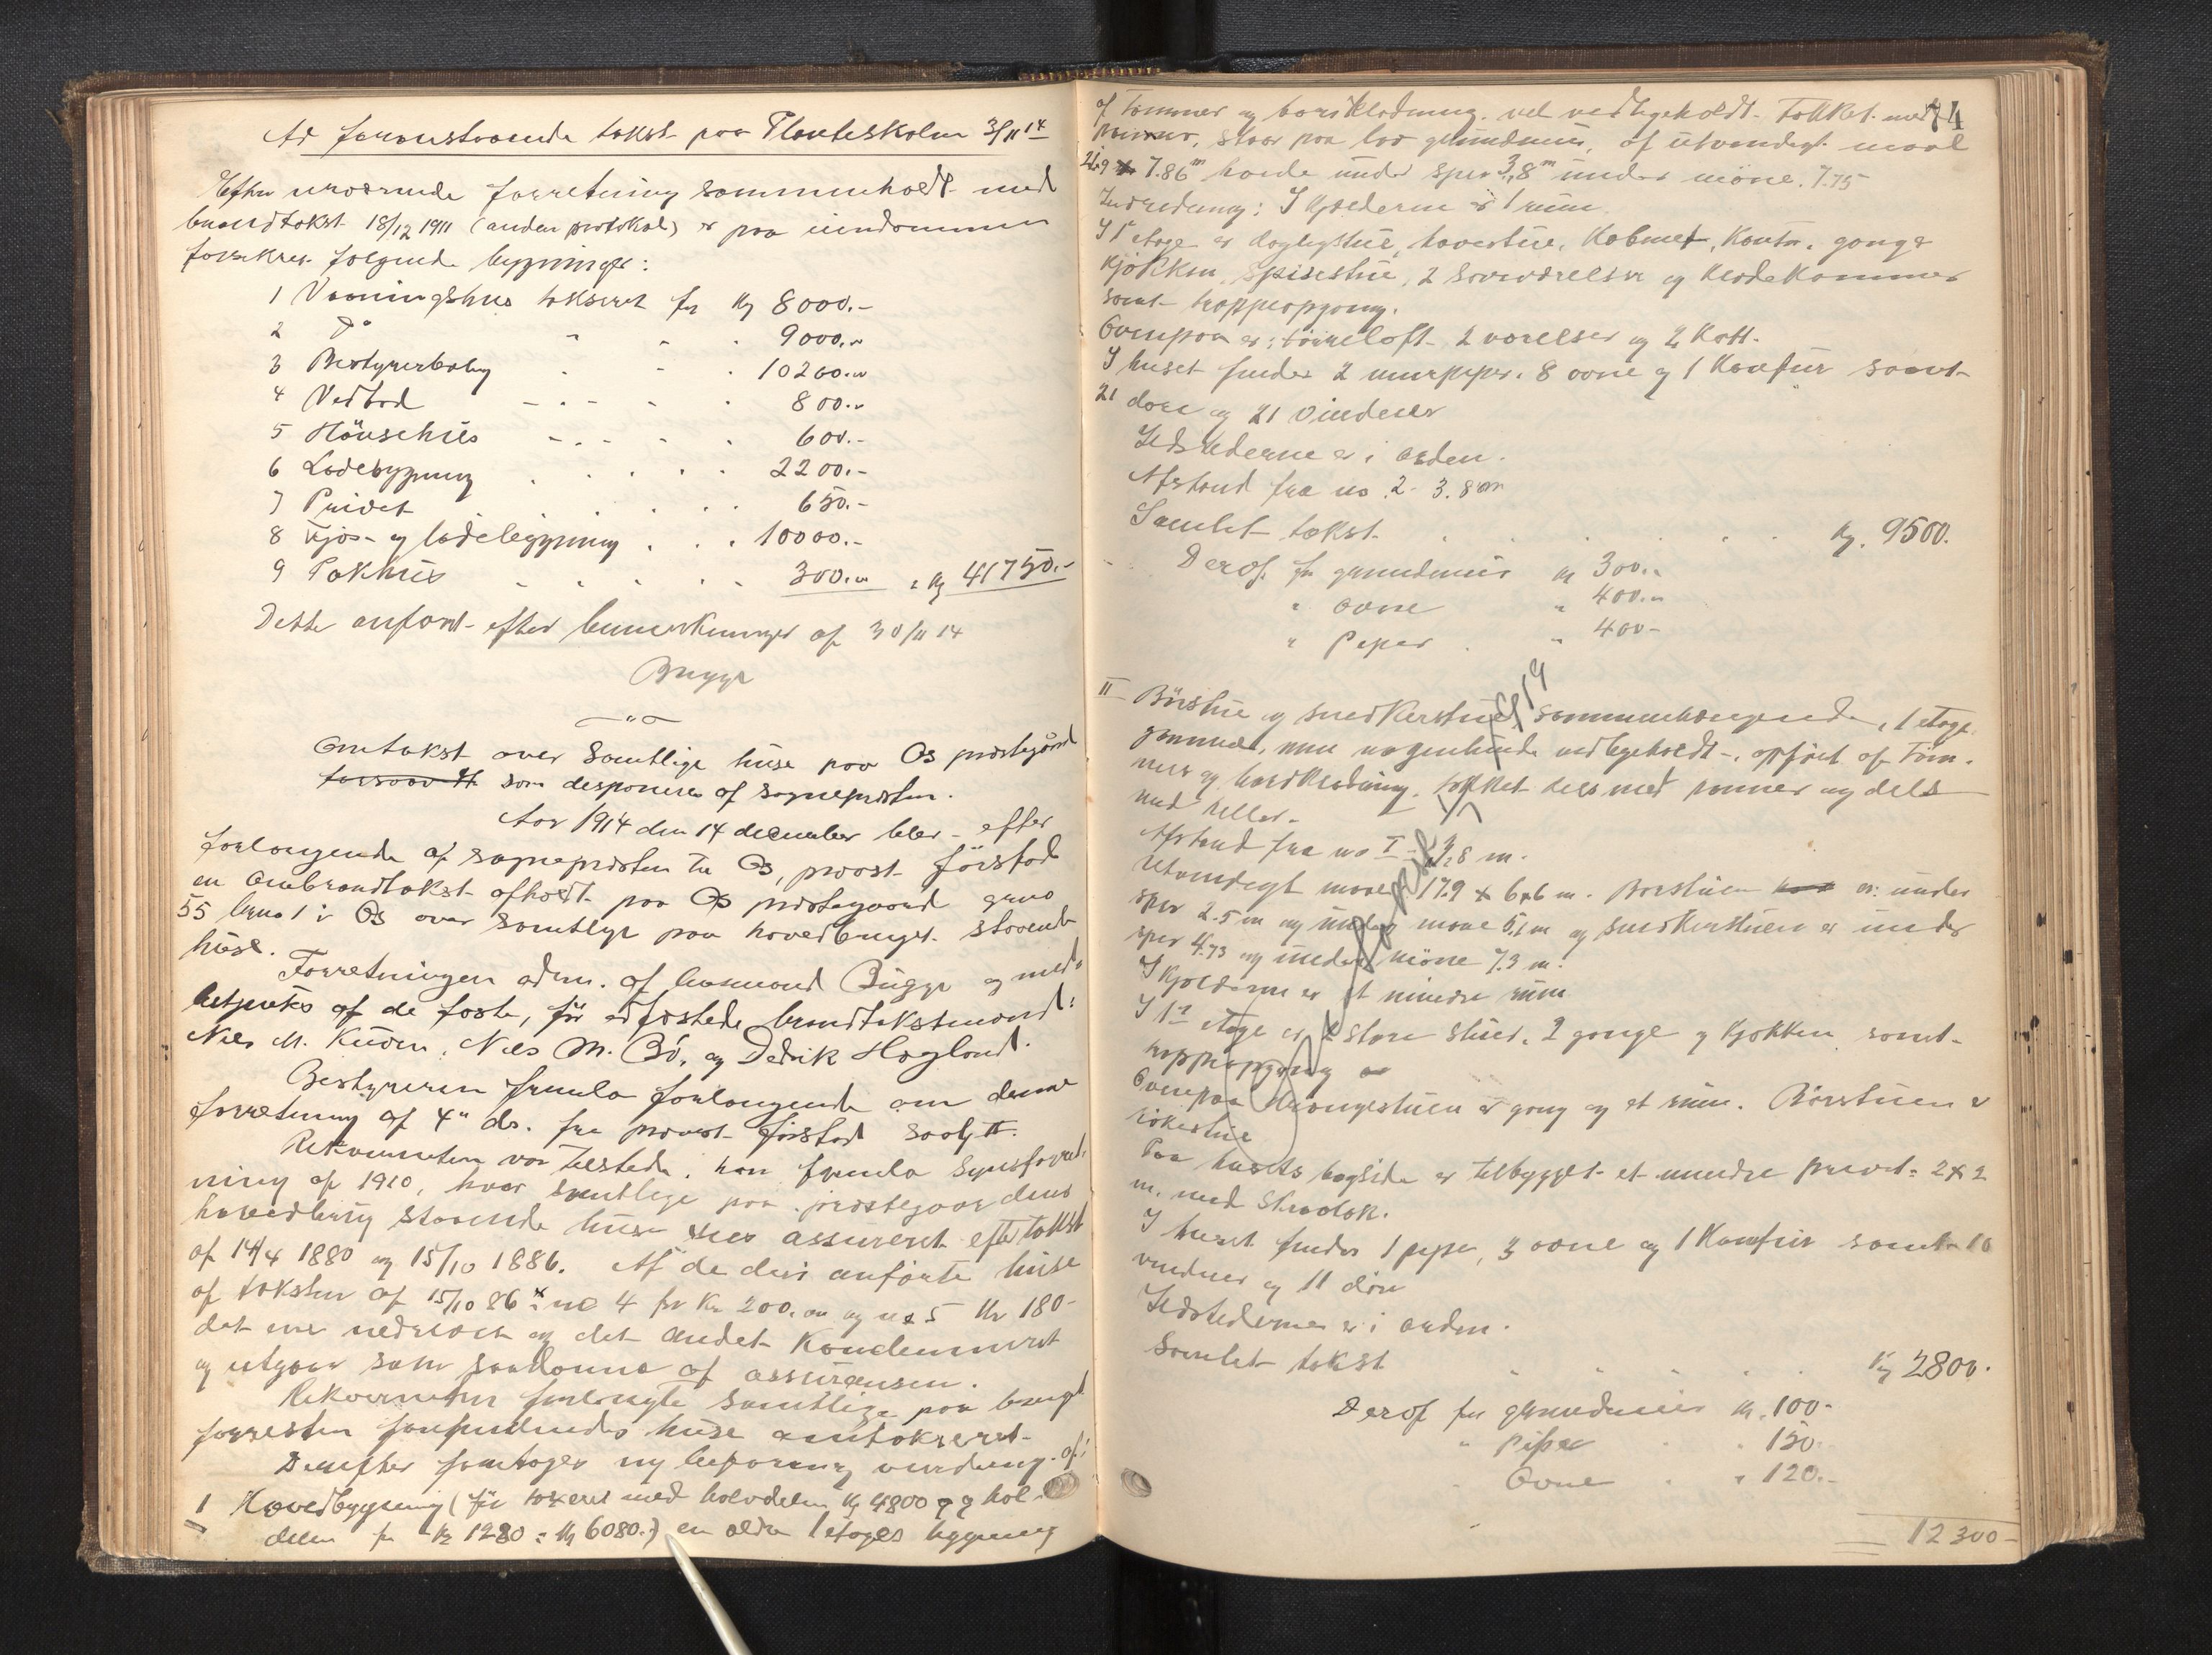 Ad foranstaaende takst paa Planteskolen 3/11 14
Efter nærværende forretning sammenholdt med
brandtakst 18/12 1911 (anden protokol) er paa eiendommen
forsikret følgende bygninger:
1 Vaaningshus takseret for Kr 8000.-
2 Do " - . 9000.-
3 Bestyrerbolig . - . 10200.-
4 Vedbod - . - - . 800.-
5 Hönsehus - . - - . 600.-
6 Ladebygning . . . . . 2200.-
7 Privet . . . . . 650.-
8 Fjös- og ladebygning . . . 10000.-
9 Pakhus - - . . - 300.- Kr 41750.-
Dette anført efter bemerkninger af 30/11 14
Bugge
Omtakst over samtlige huse paa Os prestegaard
som disponeres af sognepresten.
Aar 1914 den 14 december blev efter
forlangende af sognepresten til Os, provst Førstad
en ombrandtakst afholdt paa Os prestegaard gno
55 bno 1 i Os over samtlige paa hovedbruget staaende
huse.
Forretningen adm. af lensmand Bugge og med-
betjentes af de faste, før edfæstede brandtakstmænd:
Nils M. Kuven, Nils M. Bö, og Dedrik Haglund.
Bestyreren fremla forlangende om denne
forretning af 4de ds. fra provst Førstad
Rekvirenten var tilstede, han fremla synsforret-
ning af 1910, hvor samtlige paa prestegaardens
hovedbruk staaende huse sees assureret efter takst
af 14/4 1880 og 15/10 1886. Af de deri anførte huse
af taksten af 15/10 86 er no 4 for Kr 200.00 og no 5 Kr 180-
det ene nedrevet og det andet kondemneret
og utgaar som saadanne af assuransen.
Rekvirenten forlangte samtlige paa bruget
forresten forefindendes huse omtakseret.
Derefter foretoges ny befaring og vurdering af:
1 Hovedbygning (før takseret med halvdelen Kr 4800 og hal-
delen for Kr 1280 = Kr 6080.-) en ældre 1 etages bygning
74
af tømmer og bordklædning, vel vedligeholdt. Tækket med
panner, staar paa lav grundmur, af utvendigt maal
21.9 x 7.86 m høide under sper 3,8 m under møne 7.75
Indredning: I kjelderen er 1 rum.
I 1ste etage er dagligstue, havestue, kabinet, kontor, gange
kjøkken, spisestue, 2 soveværelser og klædekammer
samt trappeopgang.
Ovenpaa er: tørreloft, 2 værelser og 2 kott.
I huset findes 2 murpiper, 8 ovne og 1 komfur samt
21 døre og 21 vinduer
Ildstederne er i orden.
Afstand fra no 2 - 3.8 m
Samlet takst . . . . . . Kr. 9500.
Deraf for grundmur Kr 300.-
" ovne " 400.-
" Piper " 400-
II Börstue og snedkerstue, sammenhængende, 1 etage
gammel, men nogenlunde vedligeholdt, opført af tøm-
mer og bordklædning, tækket dels med panner og dels
med heller.
Afstand fra no I - 3,8 m.
Utvendigt maal 17.9 x 6,6 m. Borstuen er: under
sper 2.5 m og under møne 5,1 m og snedkerstuen er under
sper 4.73 og under møne 7.3 m.
I kjelderen er et mindre rum
I 1ste etage er 2 store stuer, 2 gange og kjøkken samt
trappeopgang
Ovenpaa drengestuen er gang og et rum. Börstuen er
rökestue
Paa husets bagside er tilbygget et mindre privet: 2 x 2
m. med skraatak.
I huset findes 1 pipe, 3 ovne og 1 komfur samt 10
vinduer og 11 döre
Ildstederne er i orden.
Samlet takst . . . Kr 2800.
Deraf for grundmur Kr. 100-
" Piper . . 150-
" Ovne . " 120.-
12300-